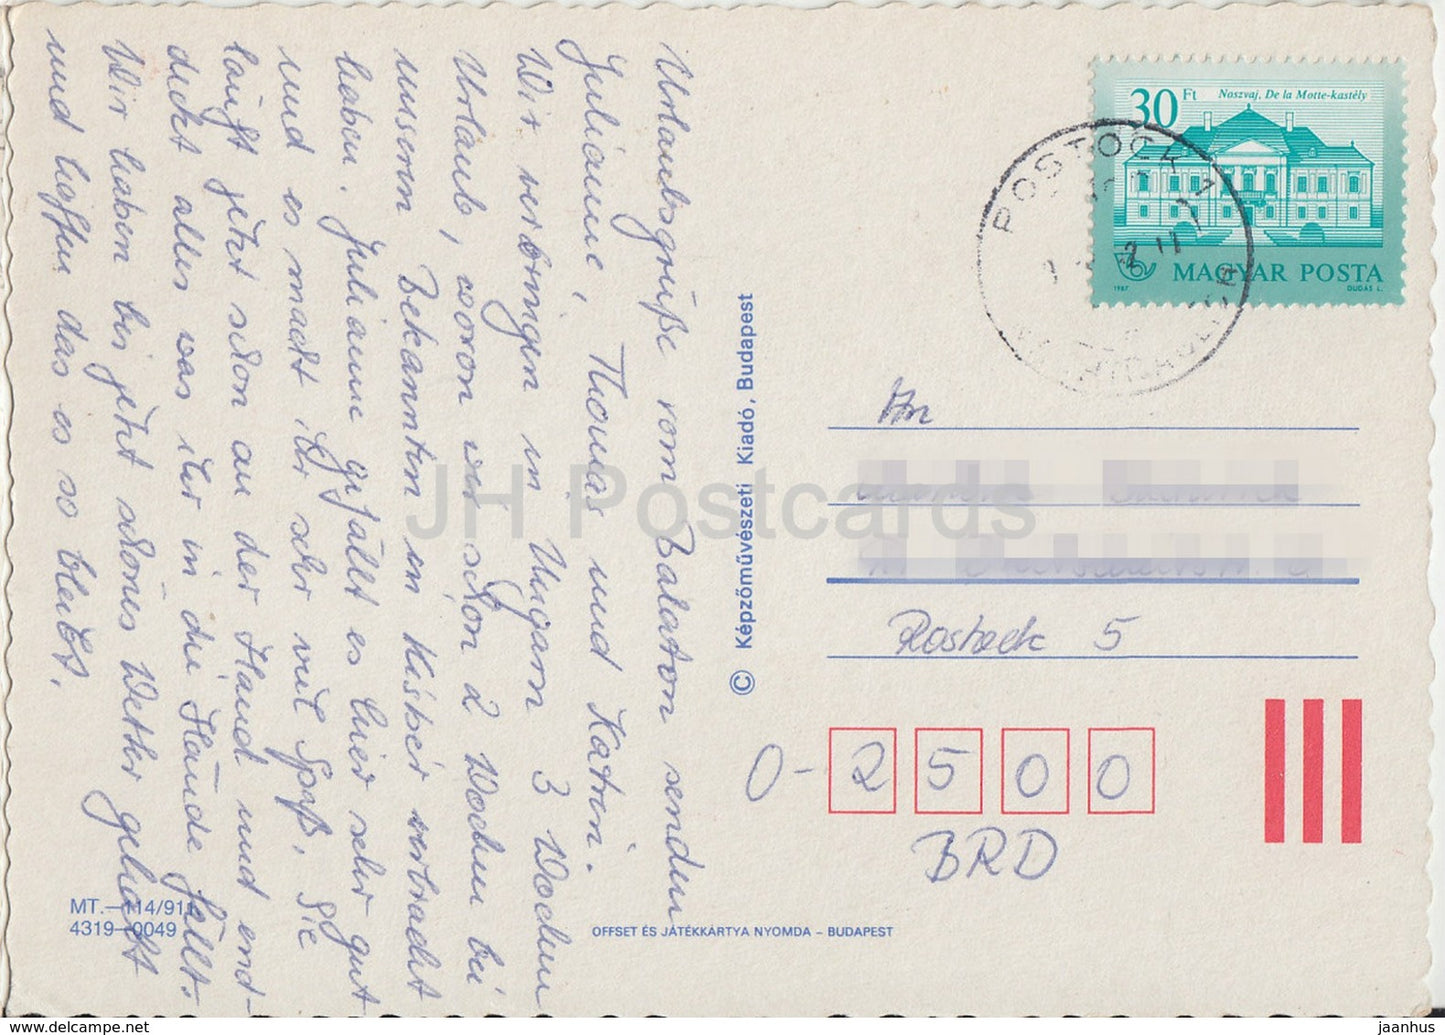 Urlaubsgrüße vom Balaton senden
Juliane, Thomas und Katrin.
Wir verbringen in Ungarn 3 Wochen
Urlaub, wovon wir schon 2 Wochen bei
unseren Bekannten in Kisbér verbracht
haben. Juliane gefällt es hier sehr gut
und es macht ihr sehr viel Spaß. Sie
läuft jetzt schon an der Hand und end-
deckt alles was ihr in die Hände fällt.
Wir haben bis jetzt schönes Wetter gehabt
und hoffen das es so bleibt.
MT.—114/911
4319—0049
© Képzőművészeti Kiadó, Budapest
OFFSET ÉS JÁTÉKKÁRTYA NYOMDA – BUDAPEST
30 Ft
Noszvaj, De la Motte-kastély
MAGYAR POSTA
1987
DUDÁS L.
An
Rostock 5
O-2500
BRD
JH Postcards
www.delcampe.net
jaanhus